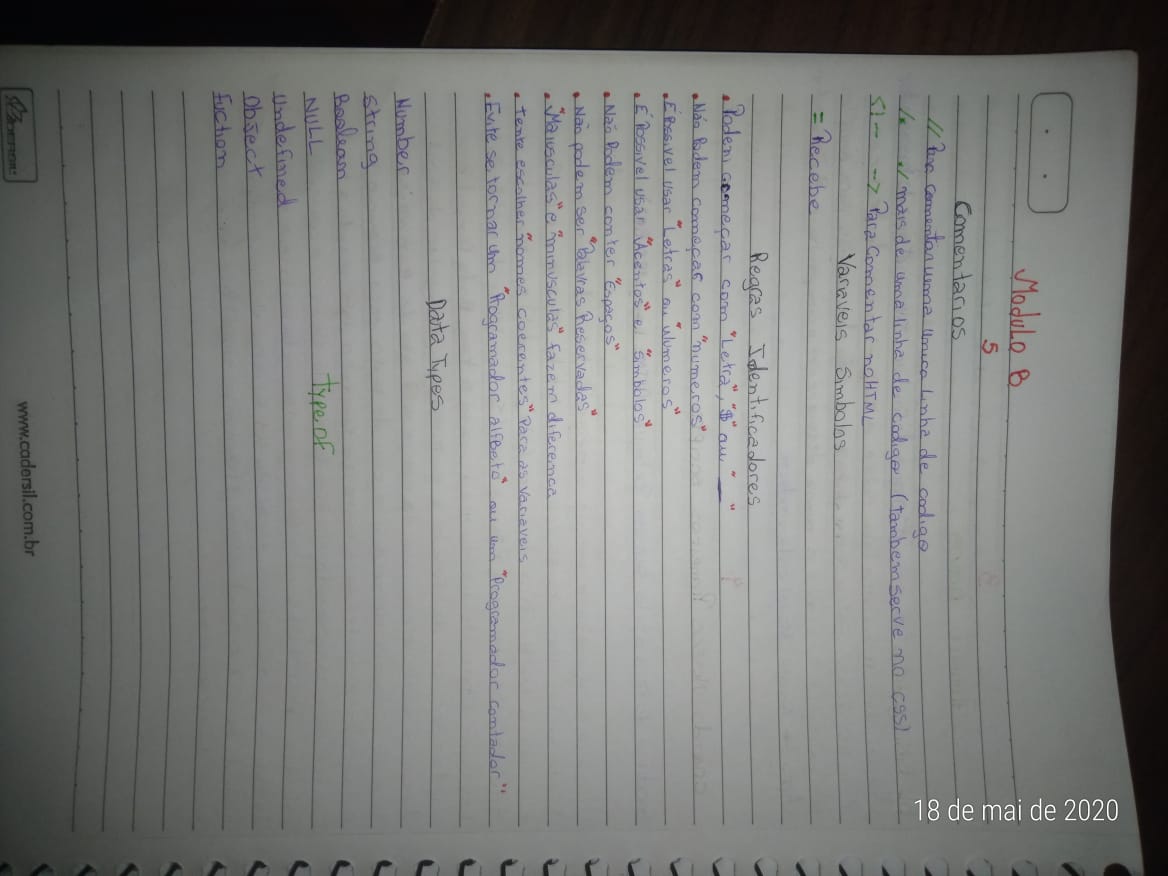 Modulo B
5
Comentarios
// Para comentar uma unica linha de codigo
/* // mais de uma linha de codigo (tambem serve no css)
<!-- --> Para comentar no HTML
Variaveis Simbolos
= Recebe
Regras Identificadores
• Podem começar com "Letra", "$" ou "_"
• Não Podem começar com "numeros"
• É Possivel usar "Letras" ou "Numeros"
• É Possivel usar "Acentos" e "Simbolos"
• Não Podem conter "Espaços"
• Não podem ser "Palavras Reservadas"
• "Maiusculas" e "minusculas" fazem diferença
• Tente escolher "nomes coerentes" Para as Variaveis
• Evite se tornar um "Programador alfabeto" ou um "Programador contador"
Data Types
Number
String
Boolean
NULL type of
Undefined
Object
Fuction
www.cadersil.com.br
18 de mai de 2020